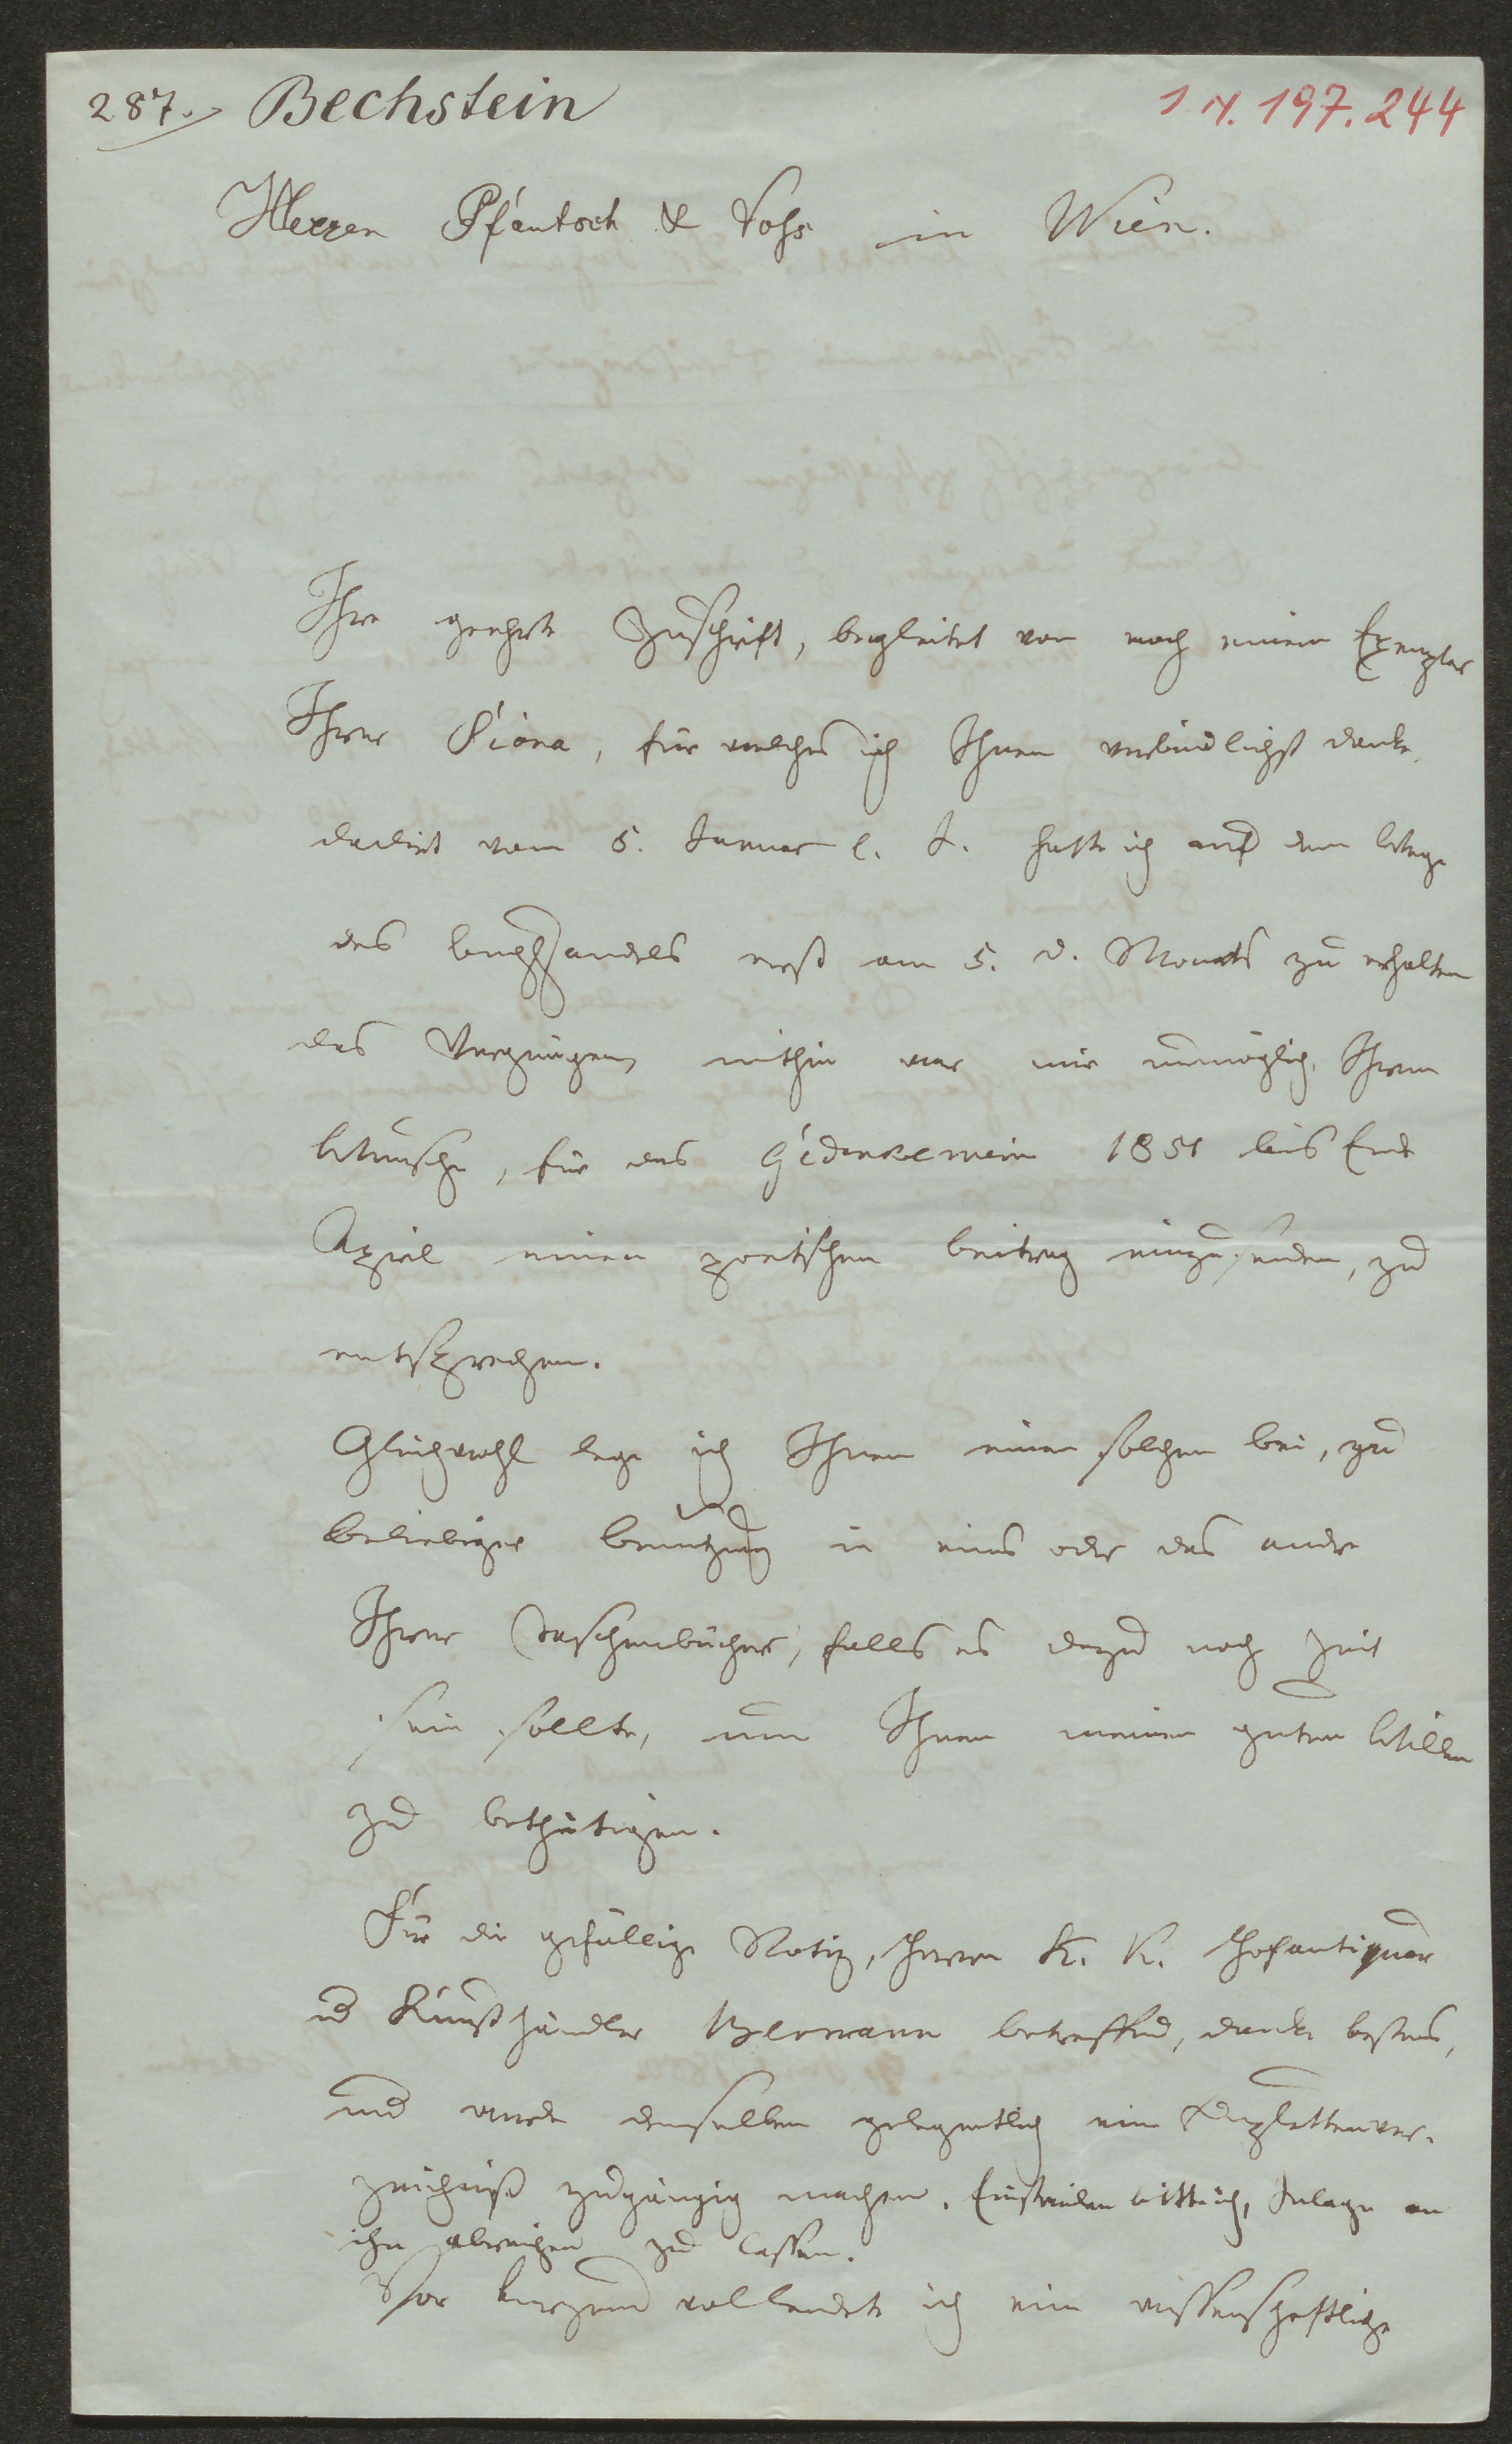 287. Bechstein
I. N. 197.244
Herren Pfautsch & Voß in Wien.
Ihre geehrte Zuschrift, begleitet von noch einem Exemplar
Ihrer Viola, für welches ich Ihnen verbindlichst danke,
datirt vom 5. Januar l. J. hatte ich auf dem Wege
des Buchhandels erst am 5. d. Monats zu erhalten
das Vergnügen, mithin war mir unmöglich, Ihrem
Wunsche, für das Gedenkemein 1851 bis Ende
April einen poetischen Beitrag einzusenden, zu
entsprechen.
Gleichwohl lege ich Ihnen einen solchen bei, zu
beliebiger Benutzung in eines oder das andre
Ihrer Taschenbücher, falls es dazu noch Zeit
sein sollte, um Ihnen meinen guten Willen
zu bethätigen.
Für die gefällige Notiz, Herrn K. K. Hofantiquar
u Kunsthändler Bermann betreffend, danke bestens,
und werde demselben gelegentlich ein Duplettenver-
zeichniß zugängig machen. Einstweilen bitte ich, Inlage an
ihn abreichen zu lassen.
Vor kurzem vollendete ich eine wissenschaftliche